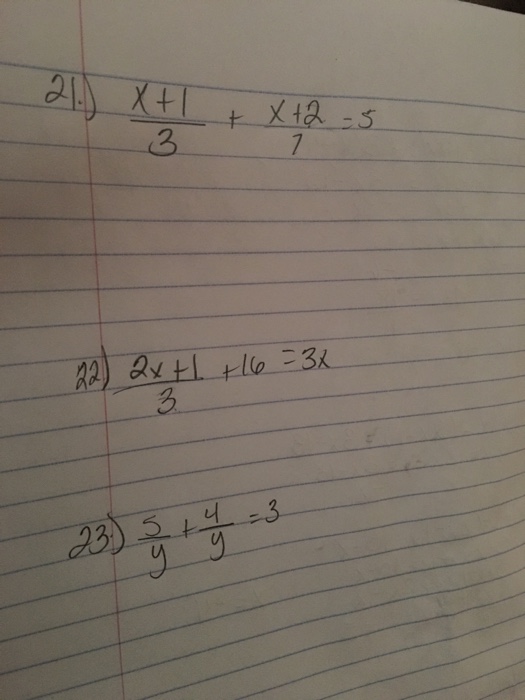 21.) x+1/3 + x+2/7 = 5
22) 2x+1/3 + 16 = 3x
23) 5/y + 4/y = 3